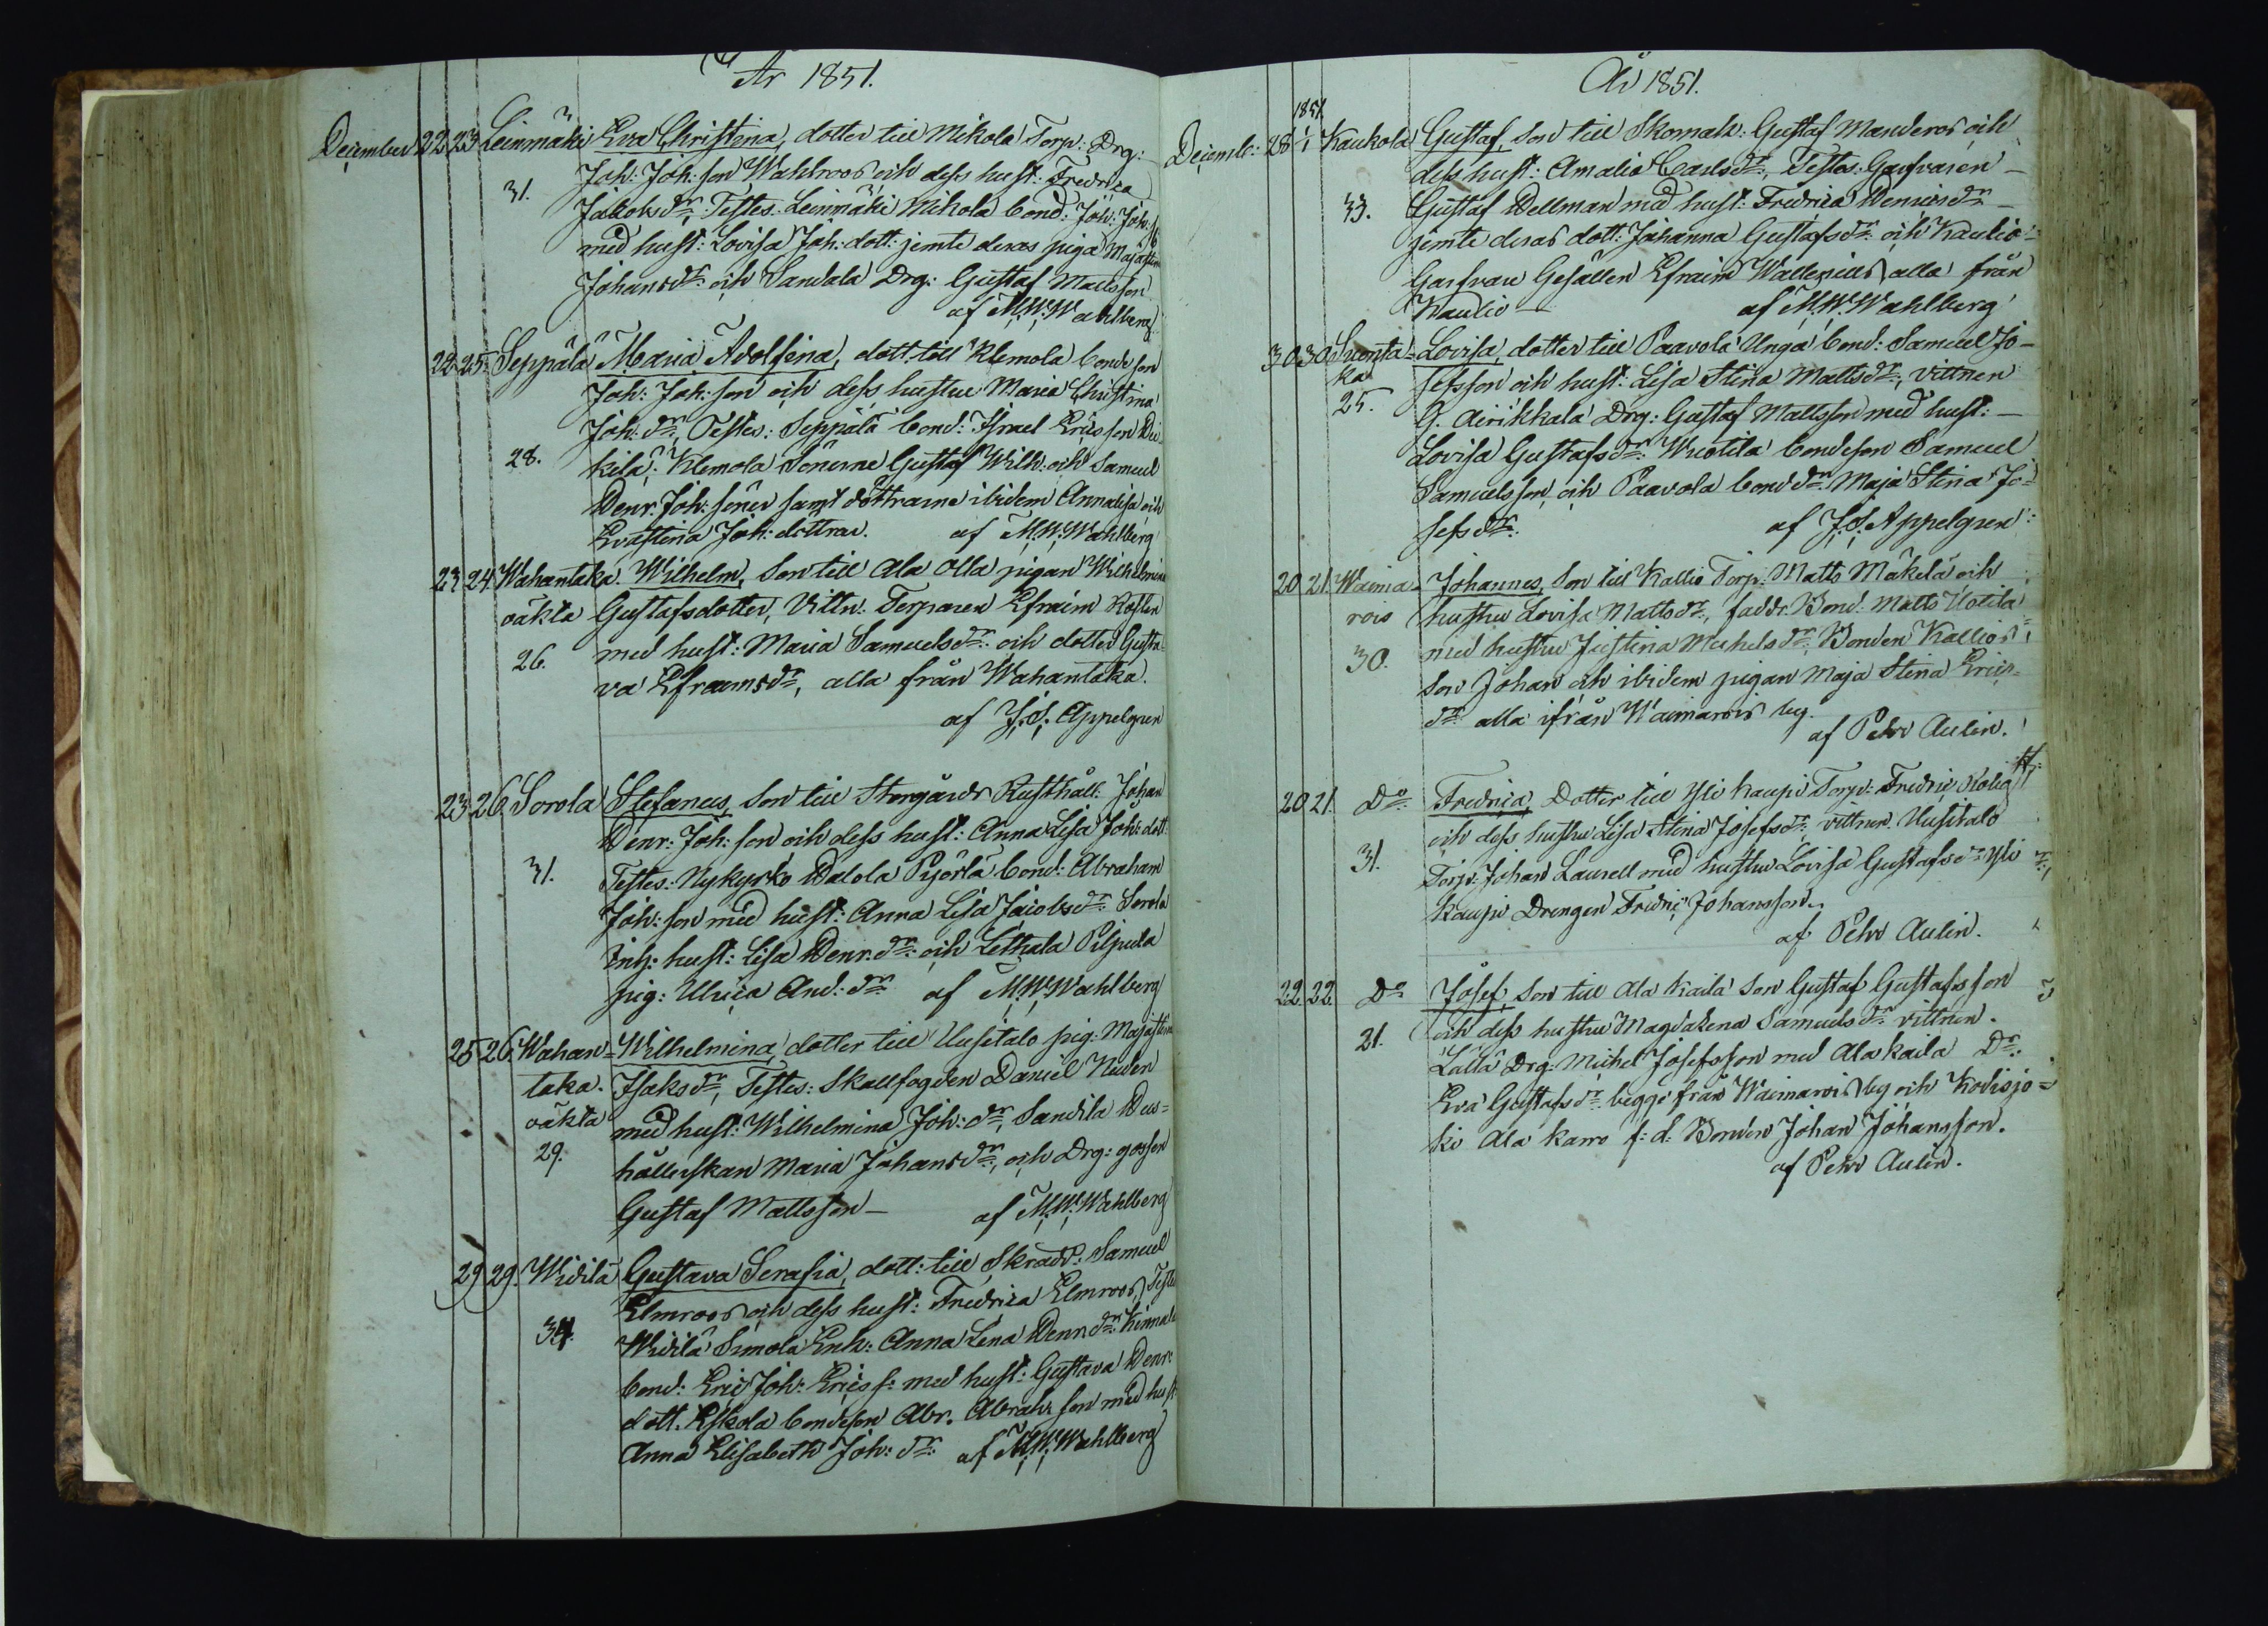 År 1851.
December 22 23 Leinmäki Eva Christina, dotter till Mikola Torp: Drg:
Joh: Joh: son Wahlroos och dess hust: Fredrica
31. Jakobs dr: Testes. Leinmäki Mikola bond: Joh: Joh: s:
med hust: Lovisa Joh: dott: jemte deras piga Majastina
Johans dr: och Sandala Drg: Gustaf Mattsson
af M.W. Wahlberg
22 25. Seppälä Maria Adolfina, dott: till Klemola bonde son
Joh: Joh: son och dess hustru Maria Christina
Joh: dr, Testes: Seppälä bond: Israel Ericsson
28. Klemola sönerne Gustaf Wilh: och Samuel
Henr: Joh: söner samt döttrarne ibidem Annalisa och
Evastina Joh: döttrar. af M.W. Wahlberg
23 24 Wahantaka. Wilhelm, Son till Ala Olla pigan Wilhelmina
oäkta Gustafsdotter, Vittn: Torparen Efraim
26. med hust: Maria Samuels dr: och dotter Gusta-
va Efraims dr, alla från Wahantaka.
af J.S. Appelgren
23 26. Sorola Stefanus, Son till Storgårds Rusthåll: Johan
Henr: Joh: son och dess hust: Anna Lisa Joh: dott:
31. Testes: Nykyrko Walola Pyörlä bond: Abraham
Joh: son med hust: Anna Lisa Jacobs dr: Sorola
Inh: hust: Lisa Henr: dr: och Lethala Pilpula
pig: Ulrica And: dr: af M.W. Wahlberg
25 26. Wahan- Wilhelmina, dotter till Uusitalo pig: Majastina
taka. Isaks dr, Testes: Skallfogden Daniel
oäkta med hust: Wilhelmina Joh: dr, Sandila Hus-
29. hållerskan Maria Johans dr, och Drg: gossen
Gustaf Mattsson – af M.W. Wahlberg
29 29. Widilä Gustava Serafia, dott: till Skradd: Samuel
Elmroos och dess hust: Fredrica Elmroos, Testes
34. Widilä Simola Enk: Anna Lena Henr: dr:
bond: Eric Joh: Erics s: med hust: Gustava Henr:
dott. Eskola bondeson Abr. Abrah: son med hust:
Anna Elisabeth Joh: dr: af M.W. Wahlberg
År 1851.
1851
Decemb: 28 1 Kaukola Gustaf, Son till Skomak: Gustaf Manderos och
dess hust: Amalia Carls dr, Testes: Garfvaren –
33. Gustaf Hellman med hust: Fredrica Henrics dr –
jemte deras dott: Johanna Gustafs dr: och Kaulio-
Garfvare Gesällen Efraim Wallenius alla från
Kaulio – af M.W. Wahlberg
30 30 Suonta- Lovisa, dotter till Paavola Unga bond: Samuel Jo-
ka sefsson och hust: Lisa Stina Matts dr, vittnen
25. G. Äirikkala Drg: Gustaf Mattsson med hust: –
Lovisa Gustafs dr: Wuotila bondeson Samuel
Samuelsson, och Paavola bond dr: Maja Stina Jo-
sefs dr: af J.S. Appelgren
20 21. Waima- Johannes, Son till Kallio Torp: Matts Mäkelä och
rois hustru Lovisa Matts dr, faddr: Bond: Matts Uotila
30. med hustru Justina Michels dr: Bonden Kallios
Son Johan och ibidem pigan Maja Stina Erics-
dr: alla ifrån Waimarois by.
af Petr Aulin.
20 21. Do: Fredrica, Dotter till Yli Kaupi Torp: Fredric
och dess hustru Lisa Stina Josefs dr, vittnen. Uusitalo
31. Torp: Johan Laurell med hustru Lovisa Gustafs dr: Yli
Kaupi Drengen Fredric Johansson.
af Petr Aulin.
22 22. Do Josef, Son till Ala Kaila Son Gustaf Gustafsson
21. och dess hustru Magdalena Samuels dr: vittnen.
Lalla Drg: Michel Josefsson med Ala Kaila Dr:
Eva Gustafs dr: begge från Waimarois by och Kodisjo-
ki Ala Karro f: d: Bonden Johan Johansson.
af Petr Aulin.